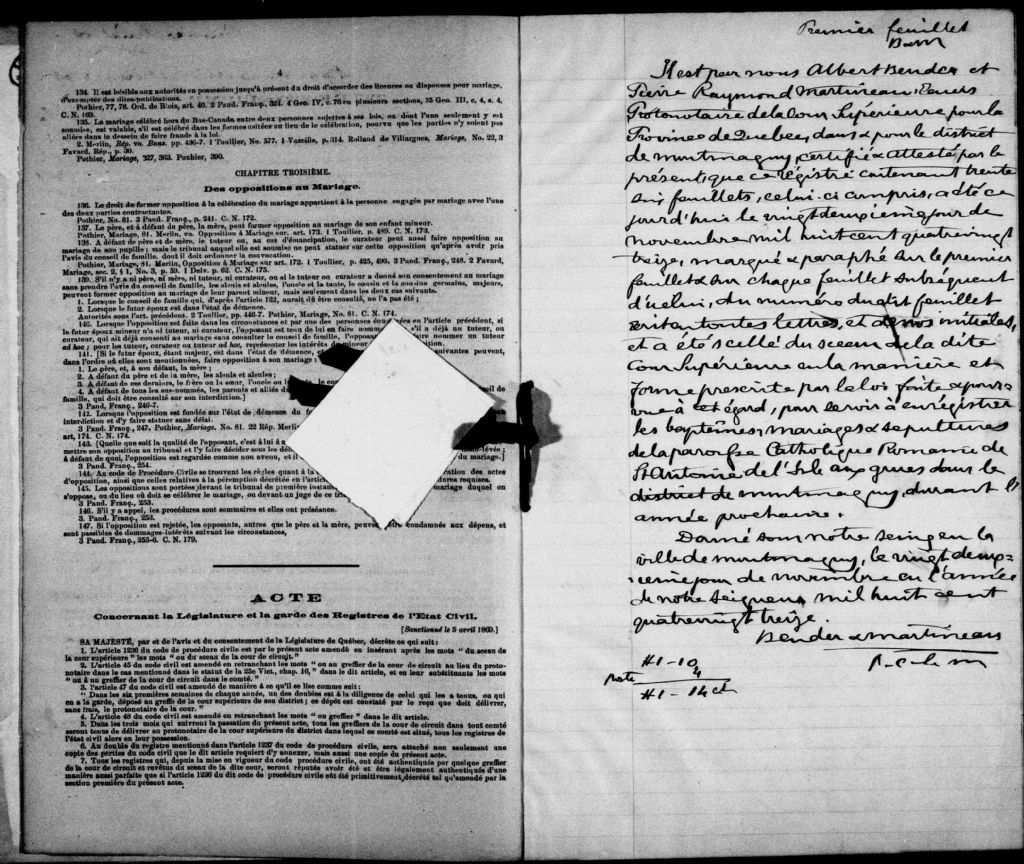 4
134. Il est loisible aux autorités en possession jusqu'à présent du droit d'accorder des licences ou dispenses pour mariage,
d'exempter des dites publications.
Pothier, 77, 78. Ord. de Blois, art. 40. 2 Pand. Franç., 324. 4 Geo. IV, c. 76 en plusieurs sections, 35 Geo. III, c. 4, s. 4,
C. N. 169.
135. Le mariage célébré hors du Bas-Canada entre deux personnes sujettes à ses lois, ou dont l'une seulement y est
soumise, est valable, s'il est célébré dans les formes usitées au lieu de la célébration, pourvu que les parties n'y soient pas
allées dans le dessein de faire fraude à la loi.
2. Merlin, Rép. vo. Bans. pp. 436-7. 1 Toullier, No. 577. 1 Vazeille, p. 314. Rolland de Villargues, Mariage, No. 22, 3
Favard, Rép., p. 30.
Pothier, Mariage, 327, 363. Pouhier, 390.
CHAPITRE TROISIÈME.
Des oppositions au Mariage.
136. Le droit de former opposition à la célébration du mariage appartient à la personne engagée par mariage avec l'une
des deux parties contractantes.
Pothier, No. 81. 3 Pand. Franç., p. 241. C. N. 172.
137. Le père, et à défaut du père, la mère, peut former opposition au mariage de son enfant mineur.
Pothier, Mariage, 81. Merlin, vo. Opposition à Mariage sur. art. 173. 1 Toullier, p. 489. C. N. 173.
138. A défaut de père et de mère, le tuteur ou, au cas d'émancipation, le curateur peut aussi faire opposition au
mariage de son pupille; mais le tribunal auquel elle est soumise ne peut statuer sur cette opposition qu'après avoir pris
l'avis du conseil de famille. dont il doit ordonner la convocation.
Pothier, Mariage, 81. Merlin, Opposition à Mariage sur art. 172. 1 Toullier, p. 425, 490. 3 Pand. Franç., 248. 2 Favard,
Mariage, sec. 2, § 1, No. 3, p. 59. 1 Delv. p. 62. C. N. 175.
139. S'il n'y a ni père, ni mère, ni tuteur, ni curateur, ou si le tuteur ou curateur a donné son consentement au mariage
sans prendre l'avis du conseil de famille, les aïeuls et aïeules, l'oncle et la tante, le cousin et la cousine germains, majeurs,
peuvent former opposition au mariage de leur parent mineur, mais seulement dans les deux cas suivants.
1. Lorsque le conseil de famille qui, d'après l'article 122, aurait dû être consulté, ne l'a pas été;
2. Lorsque le futur époux est dans l'état de démence.
Autorités sous l'art. précédent. 2 Toullier, pp. 446-7. Pothier, Mariage, No. 81. C. N. 174.
140. Lorsque l'opposition est faite dans les circonstances et par une des personnes énoncées en l'article précédent, si
le futur époux mineur n'a ni tuteur, ni curateur, l'opposant est tenu de lui en faire nommer s'il a déjà un tuteur, ou
curateur, qui ait déjà consenti au mariage sans consulter le conseil de famille, l'opposant faire nommer un tuteur
ad hoc; pour les tuteur, curateur ou tuteur ad hoc, représenter les intérêts
141. [Si le futur époux, étant majeur, est dans l'état de démence, suivantes peuvent,
dans l'ordre où elles sont mentionnées, faire opposition à son mariage:
1. Le père, et, à son défaut, la mère;
2. A défaut du père et de la mère, les aïeuls et aïeules;
3. A défaut de ces derniers, le frère ou la sœur, l'oncle ou
4. A défaut de tous les sus-nommés, les parents et alliés
famille, qui doit être consulté sur son interdiction.]
3 Pand. Franç., 246-7.
142. Lorsque l'opposition est fondée sur l'état de démence du
interdiction et d'y faire statuer sans délai.
3 Pand. Franç., 247. Pothier, Mariage. No. 81. 22 Rép. Merlin
art, 174. C. N. 174.
143. [Quelle que soit la qualité de l'opposant, c'est à lui à
mettre son opposition au tribunal et l'y faire décider sous les
à défaut de quoi, l'opposition est regardée comme non avenue, et du mariage.]
3 Pand. Franç., 254.
144. Au code de Procédure Civile se trouvent les règles quant à la des actes
d'opposition, ainsi que celles relatives à la péremption décrétée en requises.
145. Les oppositions sont portées devant le tribunal de première mariage duquel on
s'oppose, ou du lieu où doit se célébrer le mariage, ou devant un juge de ce
3 Pand. Franç., 253.
146. S'il y a appel, les procédures sont sommaires et elles ont préséance.
3. Pand. Franç., 253.
147. Si l'opposition est rejetée, les opposants, autres que le père et la mère, peuvent être condamnés aux dépens, et
sont passibles de dommages-intérêts suivant les circonstances,
3 Pand. Franç., 255-6. C. N. 179.
ACTE
Concernant la Législature et la garde des Registres de l'Etat Civil.
[Sanctionné le 5 avril 1869.]
SA MAJESTÉ, par et de l'avis et du consentement de la Législature de Québec, décrète ce qui suit:
1. L'article 1236 du code de procédure civile est par le présent acte amendé en insérant après les mots “ du sceau de
la cour supérieure ” les mots “ ou du sceau de la cour de circuit.”
2. L'article 45 du code civil est amendé en retranchant les mots “ on au greffier de la cour de circuit au lieu du proto-
notaire dans le cas mentionné dans le statut de la 25e Vict., chap. 16,” dans le dit article, et en leur substituants les mots
“ ou à un greffier de la cour de circuit dans le comté.”
3. L'article 47 du code civil est amendé de manière à ce qu'il se lise comme suit:
“ Dans les six premières semaines de chaque année, un des doubles est à la diligence de celui qui les a tenus, ou qui
en a la garde, déposé au greffe de la cour supérieure de son district; ce dépôt est constaté par le reçu que doit délivrer,
sans frais, le protonotaire de la cour.”
4. L'article 48 du code civil est amendé en retranchant les mots “ ou greffier ” dans le dit article.
5. Dans les trois mois qui suivront la passation du présent acte, tous les greffier de la cour de circuit dans tout comté
seront tenus de délivrer au protonotaire de la cour supérieure du district dans lequel ce comté est situé, tous les registres de
l'état civil alors en leur possession.
6. Au double du registre mentionné dans l'article 1237 du code de procédure civile, sera attaché non seulement une
copie des parties du code civil que le dit article requiert d'y annexer, mais aussi une copie du présent acte.
7. Tous les registres qui, depuis la mise en vigueur du code procédure civile, ont été authentiqués par quelque greffier
de la cour de circuit et revêtus du sceau de la dite cour, seront réputés avoir été et être légalement authentiqués d'une
manière aussi parfaite que si l'article 1236 du dit code de procédure civile eût été primitivement décrété tel qu'amendé par la
section première du présent acte.
Premier feuillet
B &M
Il est par nous Albert Bender et
Pierre Raymond Martineau, Ecuiers
Protonotaire de la Cour Supérieure pour la
Province de Quebec, dans & pour le district
de Montmagny, certifié & attesté par le
présent, que ce régistre contenant trente
six feuillets, celui-ci compris, a été ce
jour d'hui le vingt deuxième jour de
novembre mil huit cent quatrevingt
treize, marqué & paraphé sur le premier
feuillet & sur chaque feuillet subséquent
d'icelui, du numéro du dit feuillet
écrit en toutes lettres, et de nos initiales,
et a été scellé du sceau de la dite
Cour Supérieure en la manière et
forme prescrite par la loi faite & pour-
vue à cet égard, pour servir à enrégistrer
les baptêmes, mariages & sépultures
de la paroisse Catholique Romaine de
St Antoine de l'Isle aux grues dans le
district de Montmagny, durant l'
année prochaine.
Donné sous notre seing en la
ville de Montmagny, le vingt deux-
ieme jour de novembre en l'année
de notre Seigneur mil huit cent
quatrevingt treize.
Bender & Martineau
P. C. S. M
#1-10
4
#1-14 ct